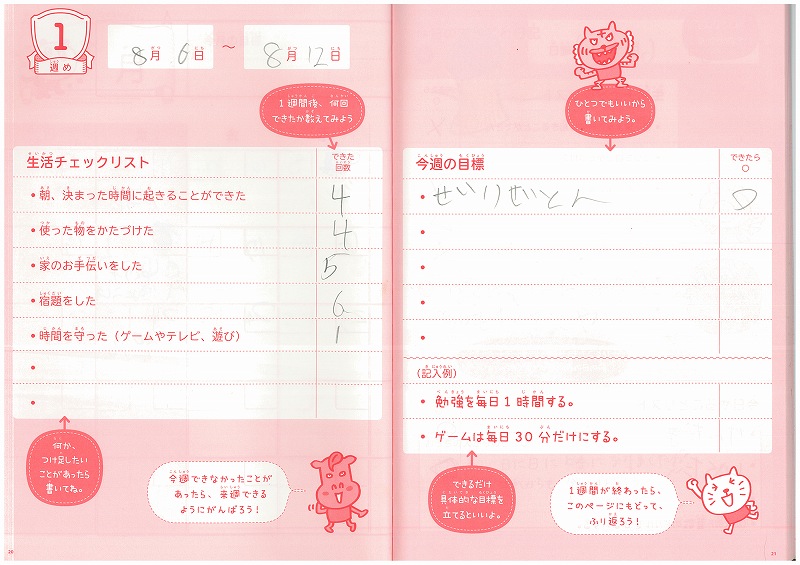 1
週め
8月 6日 ~ 8月 12日
1週間後、何回
できたか数えてみよう
生活チェックリスト
できた
回数
・朝、決まった時間に起きることができた 4
・使った物をかたづけた 4
・家のお手伝いをした 5
・宿題をした 6
・時間を守った（ゲームやテレビ、遊び） 1
・
・
何か、
つけ足したい
ことがあったら
書いてね。
今週できなかったことが
あったら、来週できる
ようにがんばろう！
20
ひとつでもいいから
書いてみよう。
今週の目標
できたら
○
・せいりせいとん ○
・
・
・
・
（記入例）
・勉強を毎日1時間する。
・ゲームは毎日30分だけにする。
できるだけ
具体的な目標を
立てるといいよ。
1週間が終わったら、
このページにもどって、
ふり返ろう！
21